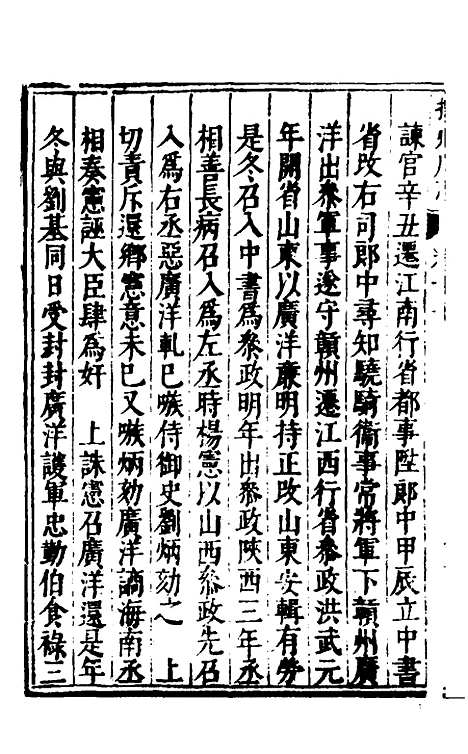 諫官辛丑遷江南行省都事陞郎中甲辰立中書
省改右司郎中尋知驍騎衞事常將軍下贛州廣
洋出叅軍事遂守贛州遷江西行省叅政洪武元
年開省山東以廣洋廉明持正改山東安輯有勞
是冬召入中書為叅政明年出叅政陝西三年丞
相善長病召入為左丞時楊憲以山西叅政先召
入為右丞惡廣洋軋巳嗾侍御史劉炳劾之　上
切責斥還鄉憲意未巳又嗾炳劾廣洋謫海南丞
相奏憲誣大臣肆為奸　上誅憲召廣洋還是年
冬與劉基同日受封封廣洋護軍忠勤伯食祿三